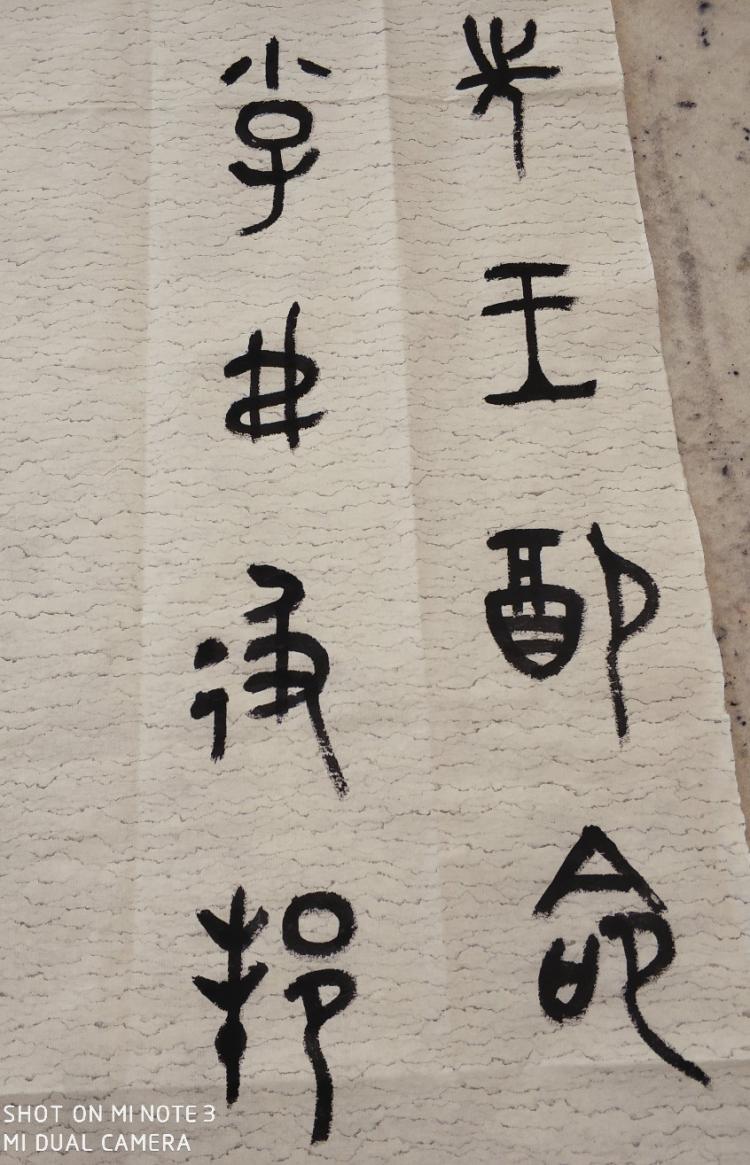 先王配命
小子弗彶邦
SHOT ON MI NOTE 3
MI DUAL CAMERA